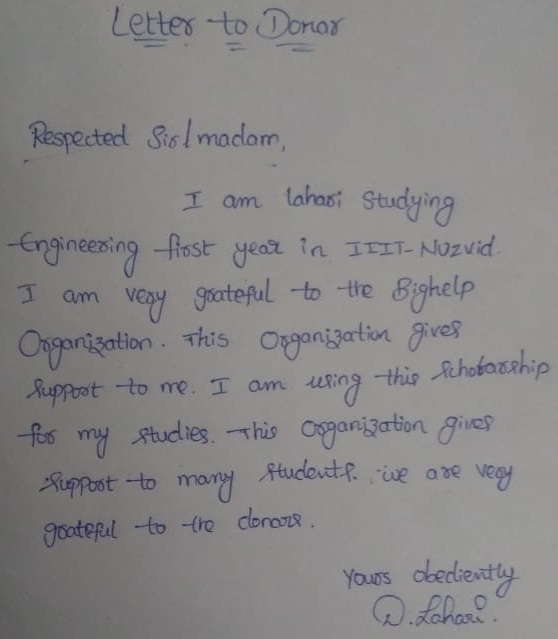 Letter to Donor
Respected Sir/madam,
I am lahari Studying
Engineering first year in IIIT-Nuzvid.
I am very grateful to the Bighelp
Organization. This Organization gives
support to me. I am using this scholarship
for my studies. This Organization gives
support to many students. we are very
grateful to the donors.
Yours obediently
D. Lahari.